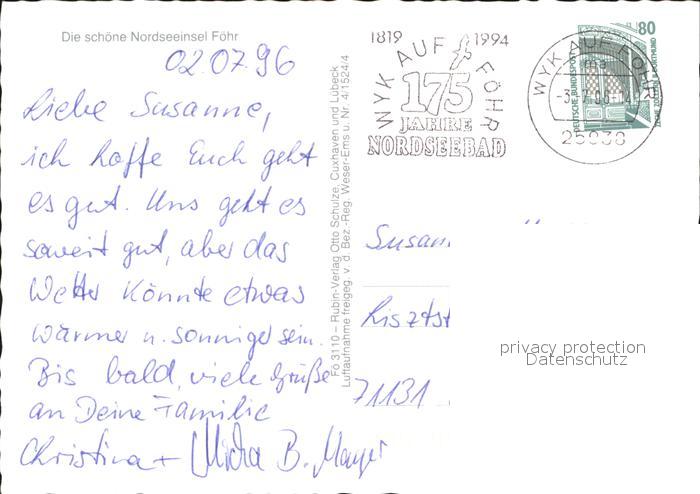 Die schöne Nordseeinsel Föhr
02.07.96
Liebe Susanne,
ich hoffe Euch geht
es gut. Uns geht es
soweit gut, aber das
Wetter könnte etwas
wärmer u. sonniger sein.
Bis bald, viele Grüße
an Deine Familie
Christina +
B. Mayer
Fö 3110 – Rubin-Verlag Otto Schulze, Cuxhaven und Lübeck
Luftaufnahme freigeg. v. d. Bez.-Reg. Weser-Ems u. Nr. 4/1524/4
1819 1994
WYK AUF FÖHR
175
JAHRE
NORDSEEBAD
WYK AUF FÖHR
25938
80
DEUTSCHE BUNDESPOST
Susan
Lisztst
71131
privacy protection
Datenschutz